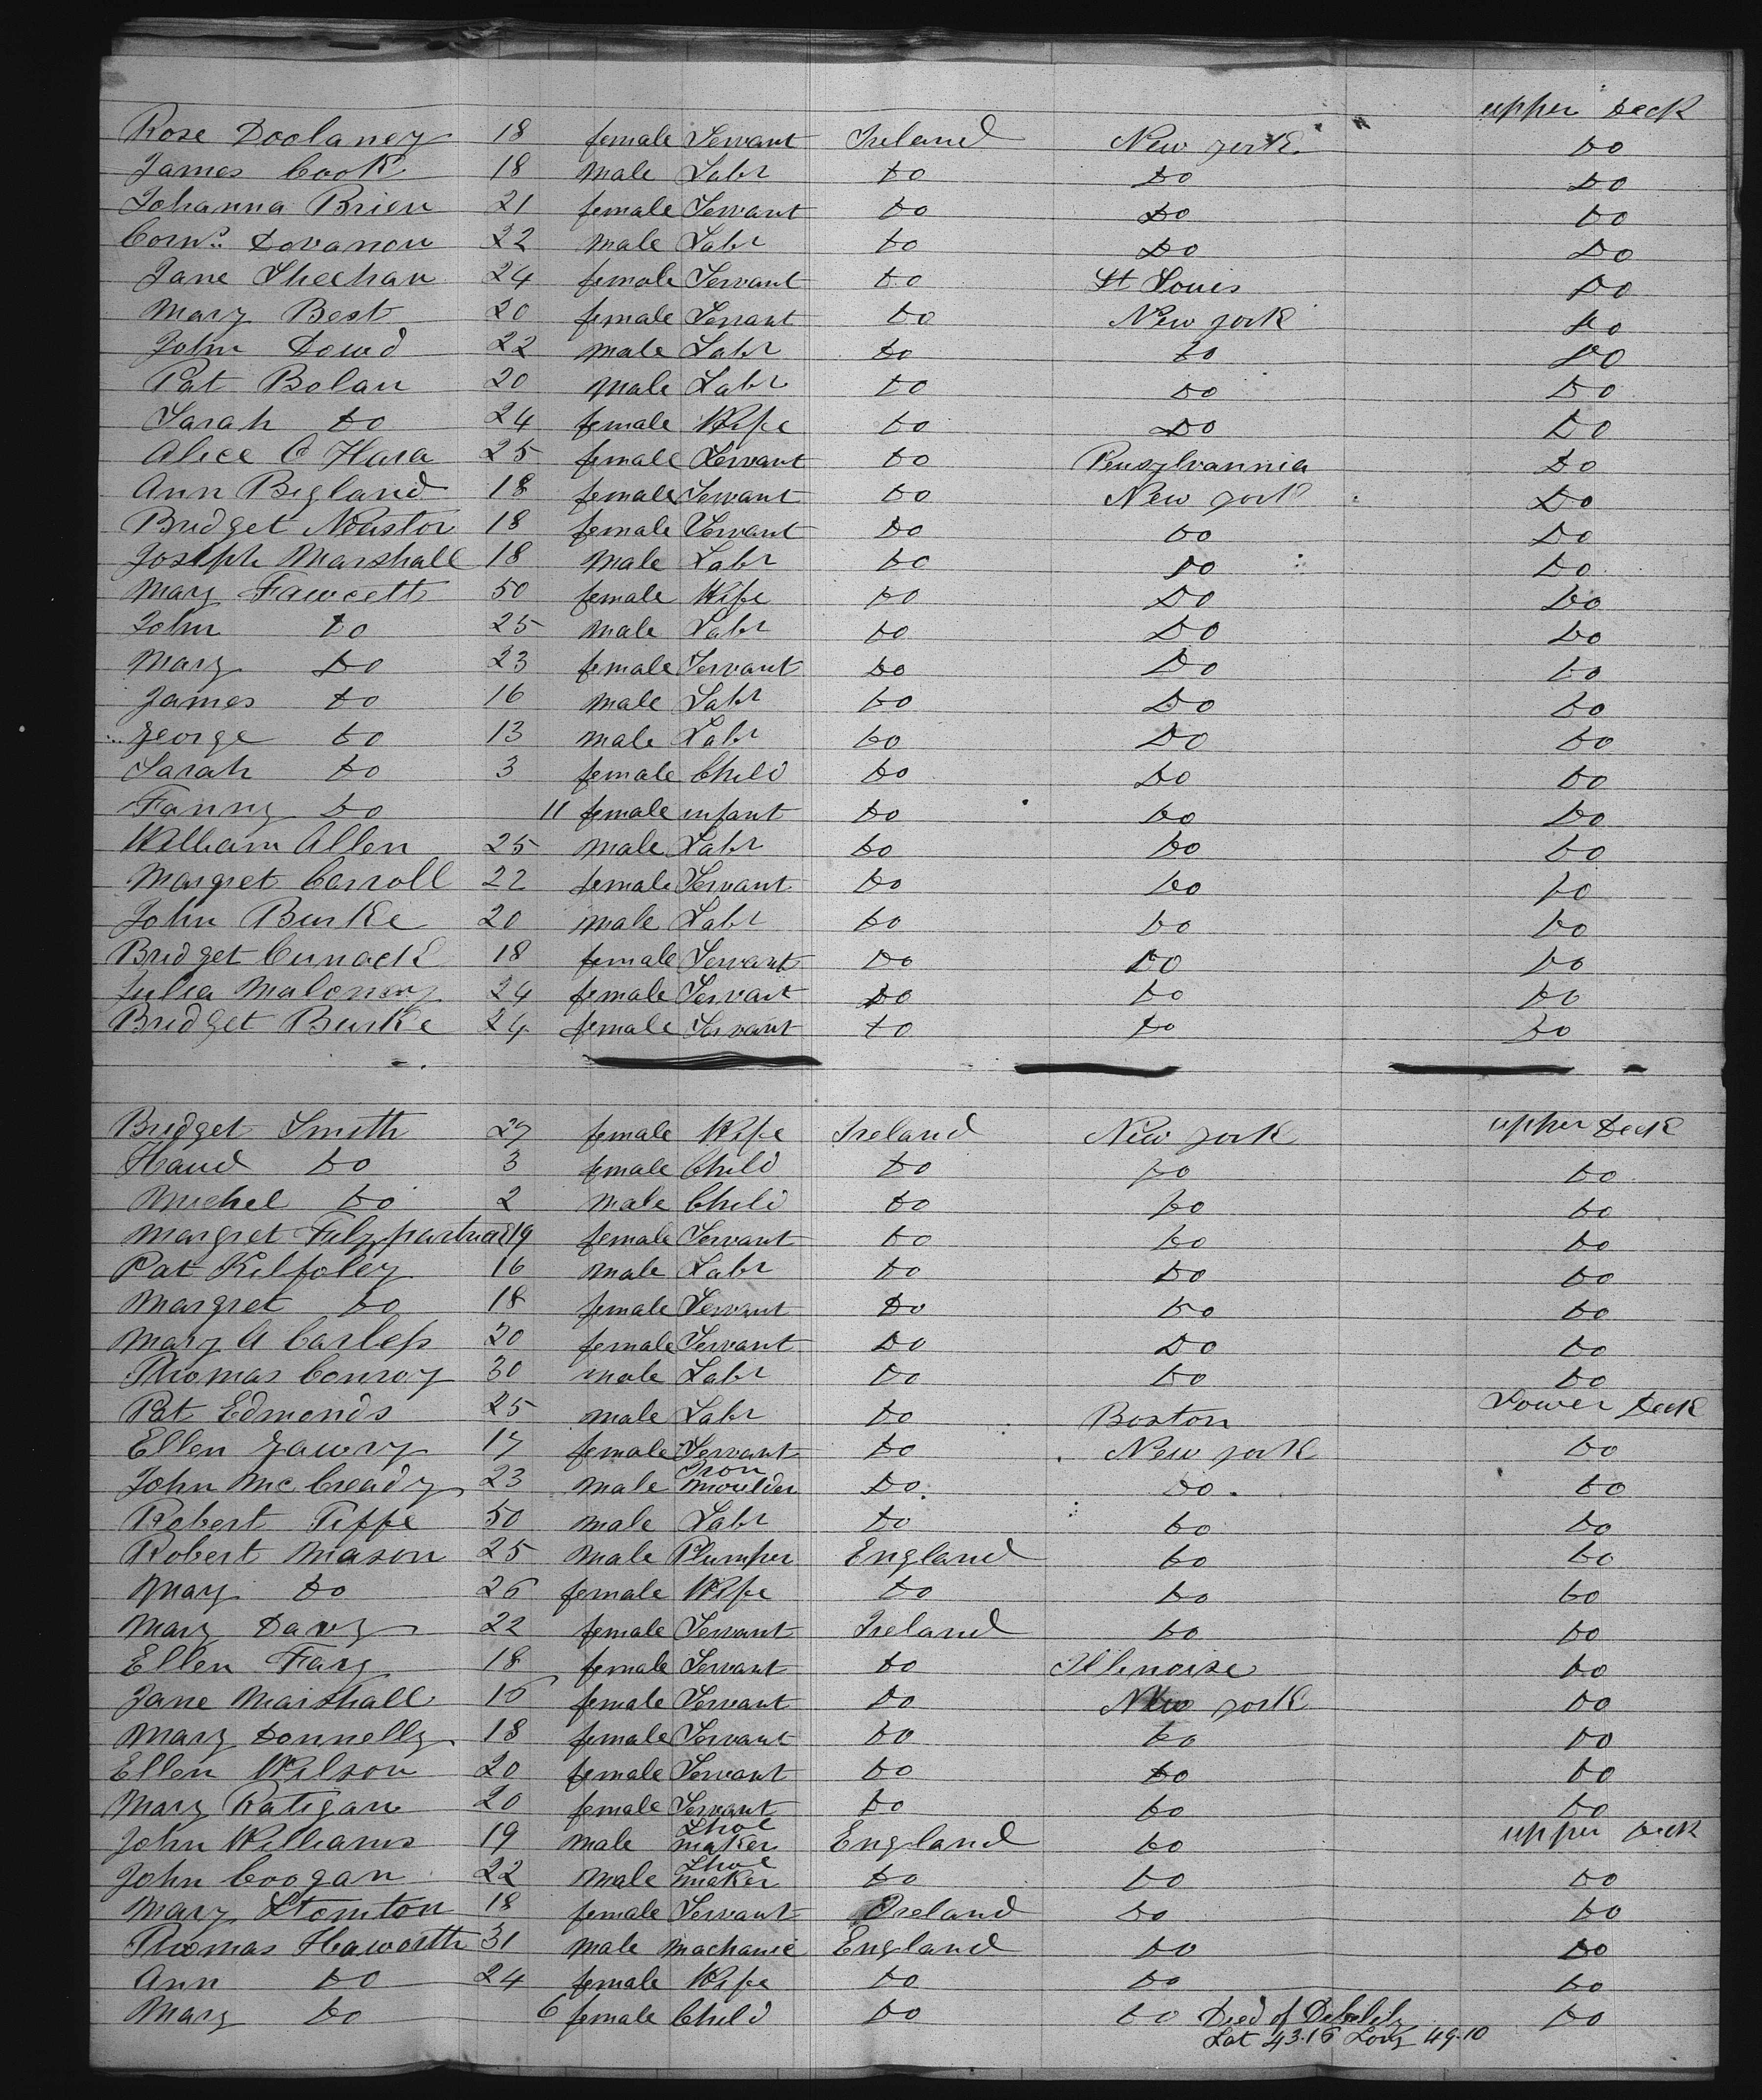 upper Deck
Rose Doolaney 18 female Servant Ireland New york Do
James Cook 18 Male Labr Do Do Do
Johanna Brien 21 female Servant Do Do Do
Corns. Dovanon 22 Male Labr Do Do Do
Jane Sheehan 24 female Servant Do St Louis Do
Mary Best 20 female Servant Do New york Do
John Dowd 22 Male Labr Do Do Do
Pat Bolan 20 Male Labr Do Do Do
Sarah Do 24 female Wife Do Do Do
Alice O Hara 25 female Servant Do Pensylvannia Do
Ann Begland 18 female Servant Do New york Do
Bridget 18 female Servant Do Do Do
Joseph Marshall 18 Male Labr Do Do Do
Mary Fawcett 50 female Wife Do Do Do
John Do 25 Male Labr Do Do Do
Mary Do 23 female Servant Do Do Do
James Do 16 Male Labr Do Do Do
George Do 13 Male Labr Do Do Do
Sarah Do 3 female Child Do Do Do
Fanny Do 11 female infant Do Do Do
William Allen 25 Male Labr Do Do Do
Margret Carroll 22 female Servant Do Do Do
John Burke 20 Male Labr Do Do Do
Bridget Cunack 18 female Servant Do Do Do
Julia Malonny 24 female Servant Do Do Do
Bridget Burke 24 female Servant Do Do Do
Bridget Smith 27 female Wife Ireland New york upper Deck
Do 3 female Child Do Do Do
Michel Do 2 Male Child Do Do Do
Margret 19 female Servant Do Do Do
Pat Kilfoley 16 Male Labr Do Do Do
Margret Do 18 female Servant Do Do Do
Mary A Carless 20 female Servant Do Do Do
Thomas Conroy 30 Male Labr Do Do Do
Pat Edmonds 25 Male Labr Do Boston Lower Deck
Ellen Gawry 17 female Servant Do New york Do
John McCready 23 Male Iron Moulder Do Do Do
Robert Tiffe 50 Male Labr Do Do Do
Robert Mason 25 Male Plumper England Do Do
Mary Do 26 female Wife Do Do Do
Mary Davy 22 female Servant Ireland Do Do
Ellen Fary 18 female Servant Do Illinoise Do
Jane Marshall 16 female Servant Do New york Do
Mary Donnelly 18 female Servant Do Do Do
Ellen Wilson 20 female Servant Do Do Do
Mary Ratigan 20 female Servant Do Do Do
John Williams 19 Male Shoe maker England Do upper Deck
John Coogan 22 Male Shoe maker Do Do Do
Mary Stomton 18 female Servant Ireland Do Do
Thomas Haworth 31 Male Machanic England Do Do
Ann Do 24 female Wife Do Do Do
Mary Do 6 female Child Do Do Died of Debility Do
Lat 43.16 Long 49.10